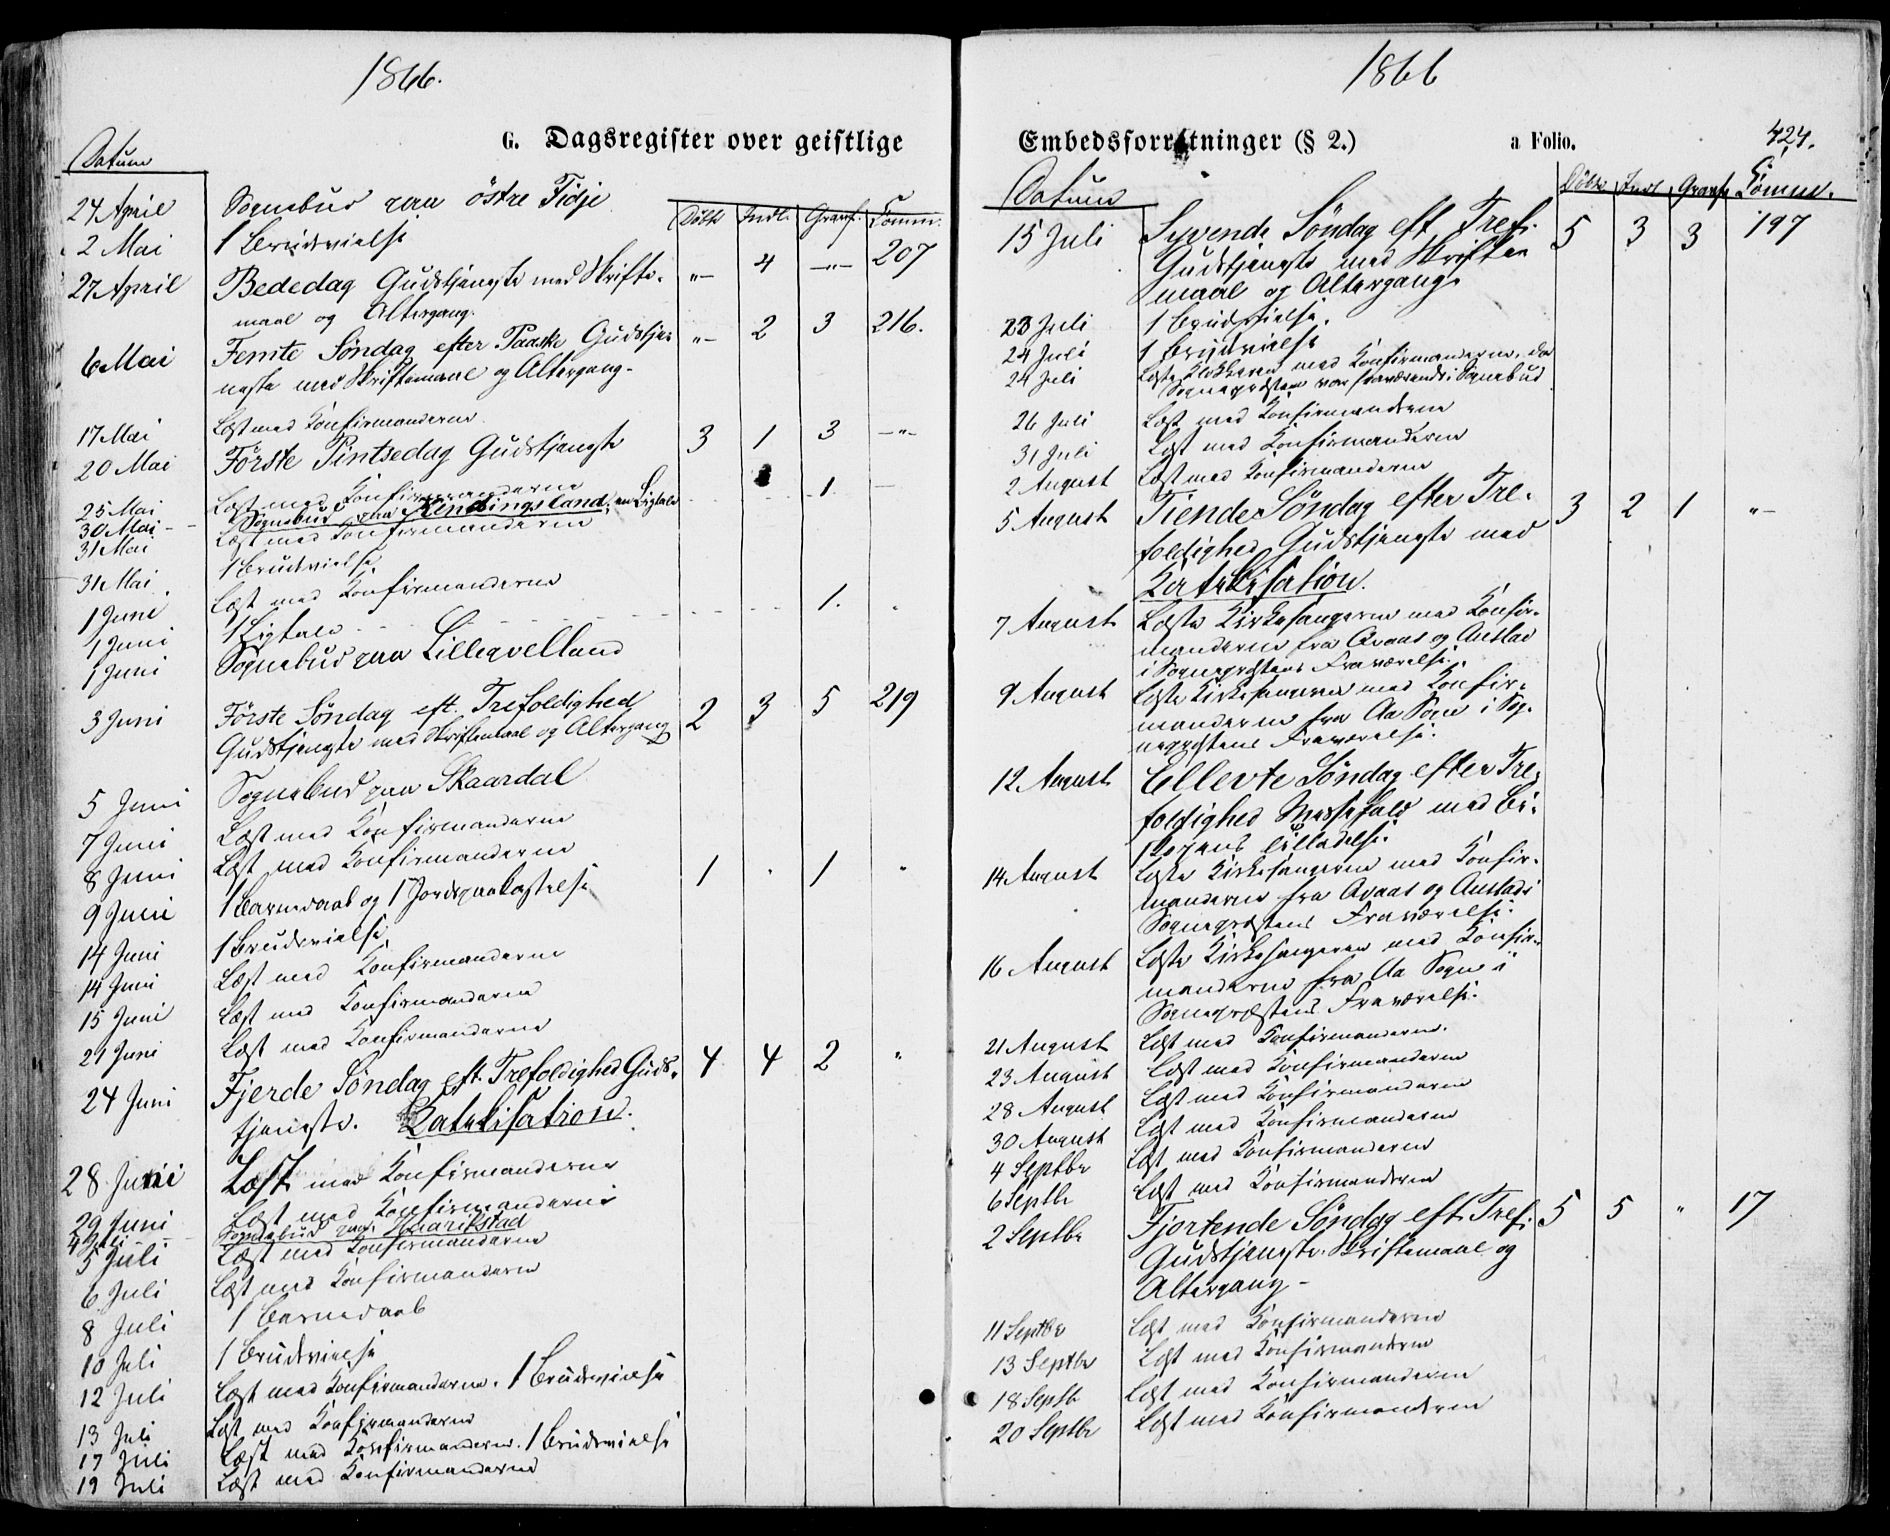 1866.
G. Dagsregister over geistlige
Datum
Døbte Indl. Gravf. Comm.
24 April Sognebud paa östre Fidje
2 Mai 1 Brudevielse
27 April Bededag Gudstjeneste med Skrifte- "- 4 -"- 207
maal og Altergang.
6 Mai Femte Söndag efter Paaske Gudstje- "- 2 3 216.
neste med Skriftemaal og Altergang-
17 Mai Læst med Konfirmanderne
20 Mai Förste Pintsedag Gudstjeneste 3 1 3 -"-
25 Mai Læst med Konfirmanderne
30 Mai - Sognebud paa Kendingsland, en Ligtale 1
31 Mai Læst med Konfirmanderne
31 Mai 1 Brudevielse
1 Juni Læst med Konfirmanderne
1 Juni 1 Ligtale 1.
1 Juni Sognebud paa Lilleqvelland
3 Juni Förste Söndag eft. Trefoldighed 2 3 5 219
Gudstjeneste med Skriftemaal og Altergang
5 Juni Sognebud paa Skaardal
7 Juni Læst med Konfirmanderne
8 Juni Læst med Konfirmanderne
9 Juni 1 Barnedaab og 1 Jordpaakastelse 1 " 1 "
14 Juni 1 Brudevielse
14 Juni Læst med Konfirmanderne
15 Juni Læst med Konfirmanderne
21 Juni Læst med Konfirmanderne
24 Juni Fjerde Söndag eft. Trefoldighed Guds- 4 4 2 "
tjeneste. Katekisation.
28 Juni Læst med Konfirmanderne
29 Juni Læst med Konfirmanderne
4 Juli - Sognebud paa Henrikstad
5 Juli Læst med Konfirmanderne
6 Juli Læst med Konfirmanderne
8 Juli 1 Barnedaab
10 Juli 1 Brudevielse
12 Juli Læst med Konfirmanderne. 1 Brudevielse
13 Juli Læst med Konfirmanderne
17 Juli Læst med Konfirmanderne. 1 Brudevielse
19 Juli Læst med Konfirmanderne
1866
Embedsforretninger (§ 2.) a Folio. 424.
Datum Döbte Indl. Gravf. Comm.
15 Juli Syvende Söndag eft. Tref. 5 3 3 197
Gudstjeneste med Skrifte
maal og Altergang
23 Juli 1 Brudevielse.
24 Juli 1 Brudevielse
24 Juli Læste Klokkeren med Konfirmanderne, da
Sognepresten var fraværende i Sognebud
26 Juli Læst med Konfirmanderne
31 Juli Læst med Konfirmanderne
2 August Læst med Konfirmanderne
5 August Tiende Söndag efter Tre- 3 2 1 "-
foldighed Gudstjeneste med
Katekisation.
7 August Læste Kirkesangeren med Konfir-
manderne fra Qvaas og Austad
i Sogneprestens Fraværelse.
9 August Læste Kirkesangeren med Konfir-
manderne fra Aa Sogn i Sog-
neprestens Fraværelse.
12 August Ellevte Söndag efter Tre-
foldighed Messefald med Bi-
skopens Tilladelse.
14 August Læste Kirkesangeren med Konfir-
manderne fra Qvaas og Austad i
Sogneprestens Fraværelse.
16 August Læste Kirkesangeren med Konfir-
manderne fra Aa Sogn i
Sogneprestens Fraværelse.
21 August Læst med Konfirmanderne.
23 August Læst med Konfirmanderne
28 August Læst med Konfirmanderne
30 August Læst med Konfirmanderne
4 Septbr Læst med Konfirmanderne
6 Septbr Læst med Konfirmanderne
2 Septbr Fjortende Söndag eft. Tref. 5 5 " 17
Gudstjeneste. Skriftemaal og
Altergang -
11 Septbr Læst med Konfirmanderne
13 Septbr Læst med Konfirmanderne
18 Septb Læst med Konfirmanderne
20 Septbr Læst med Konfirmanderne